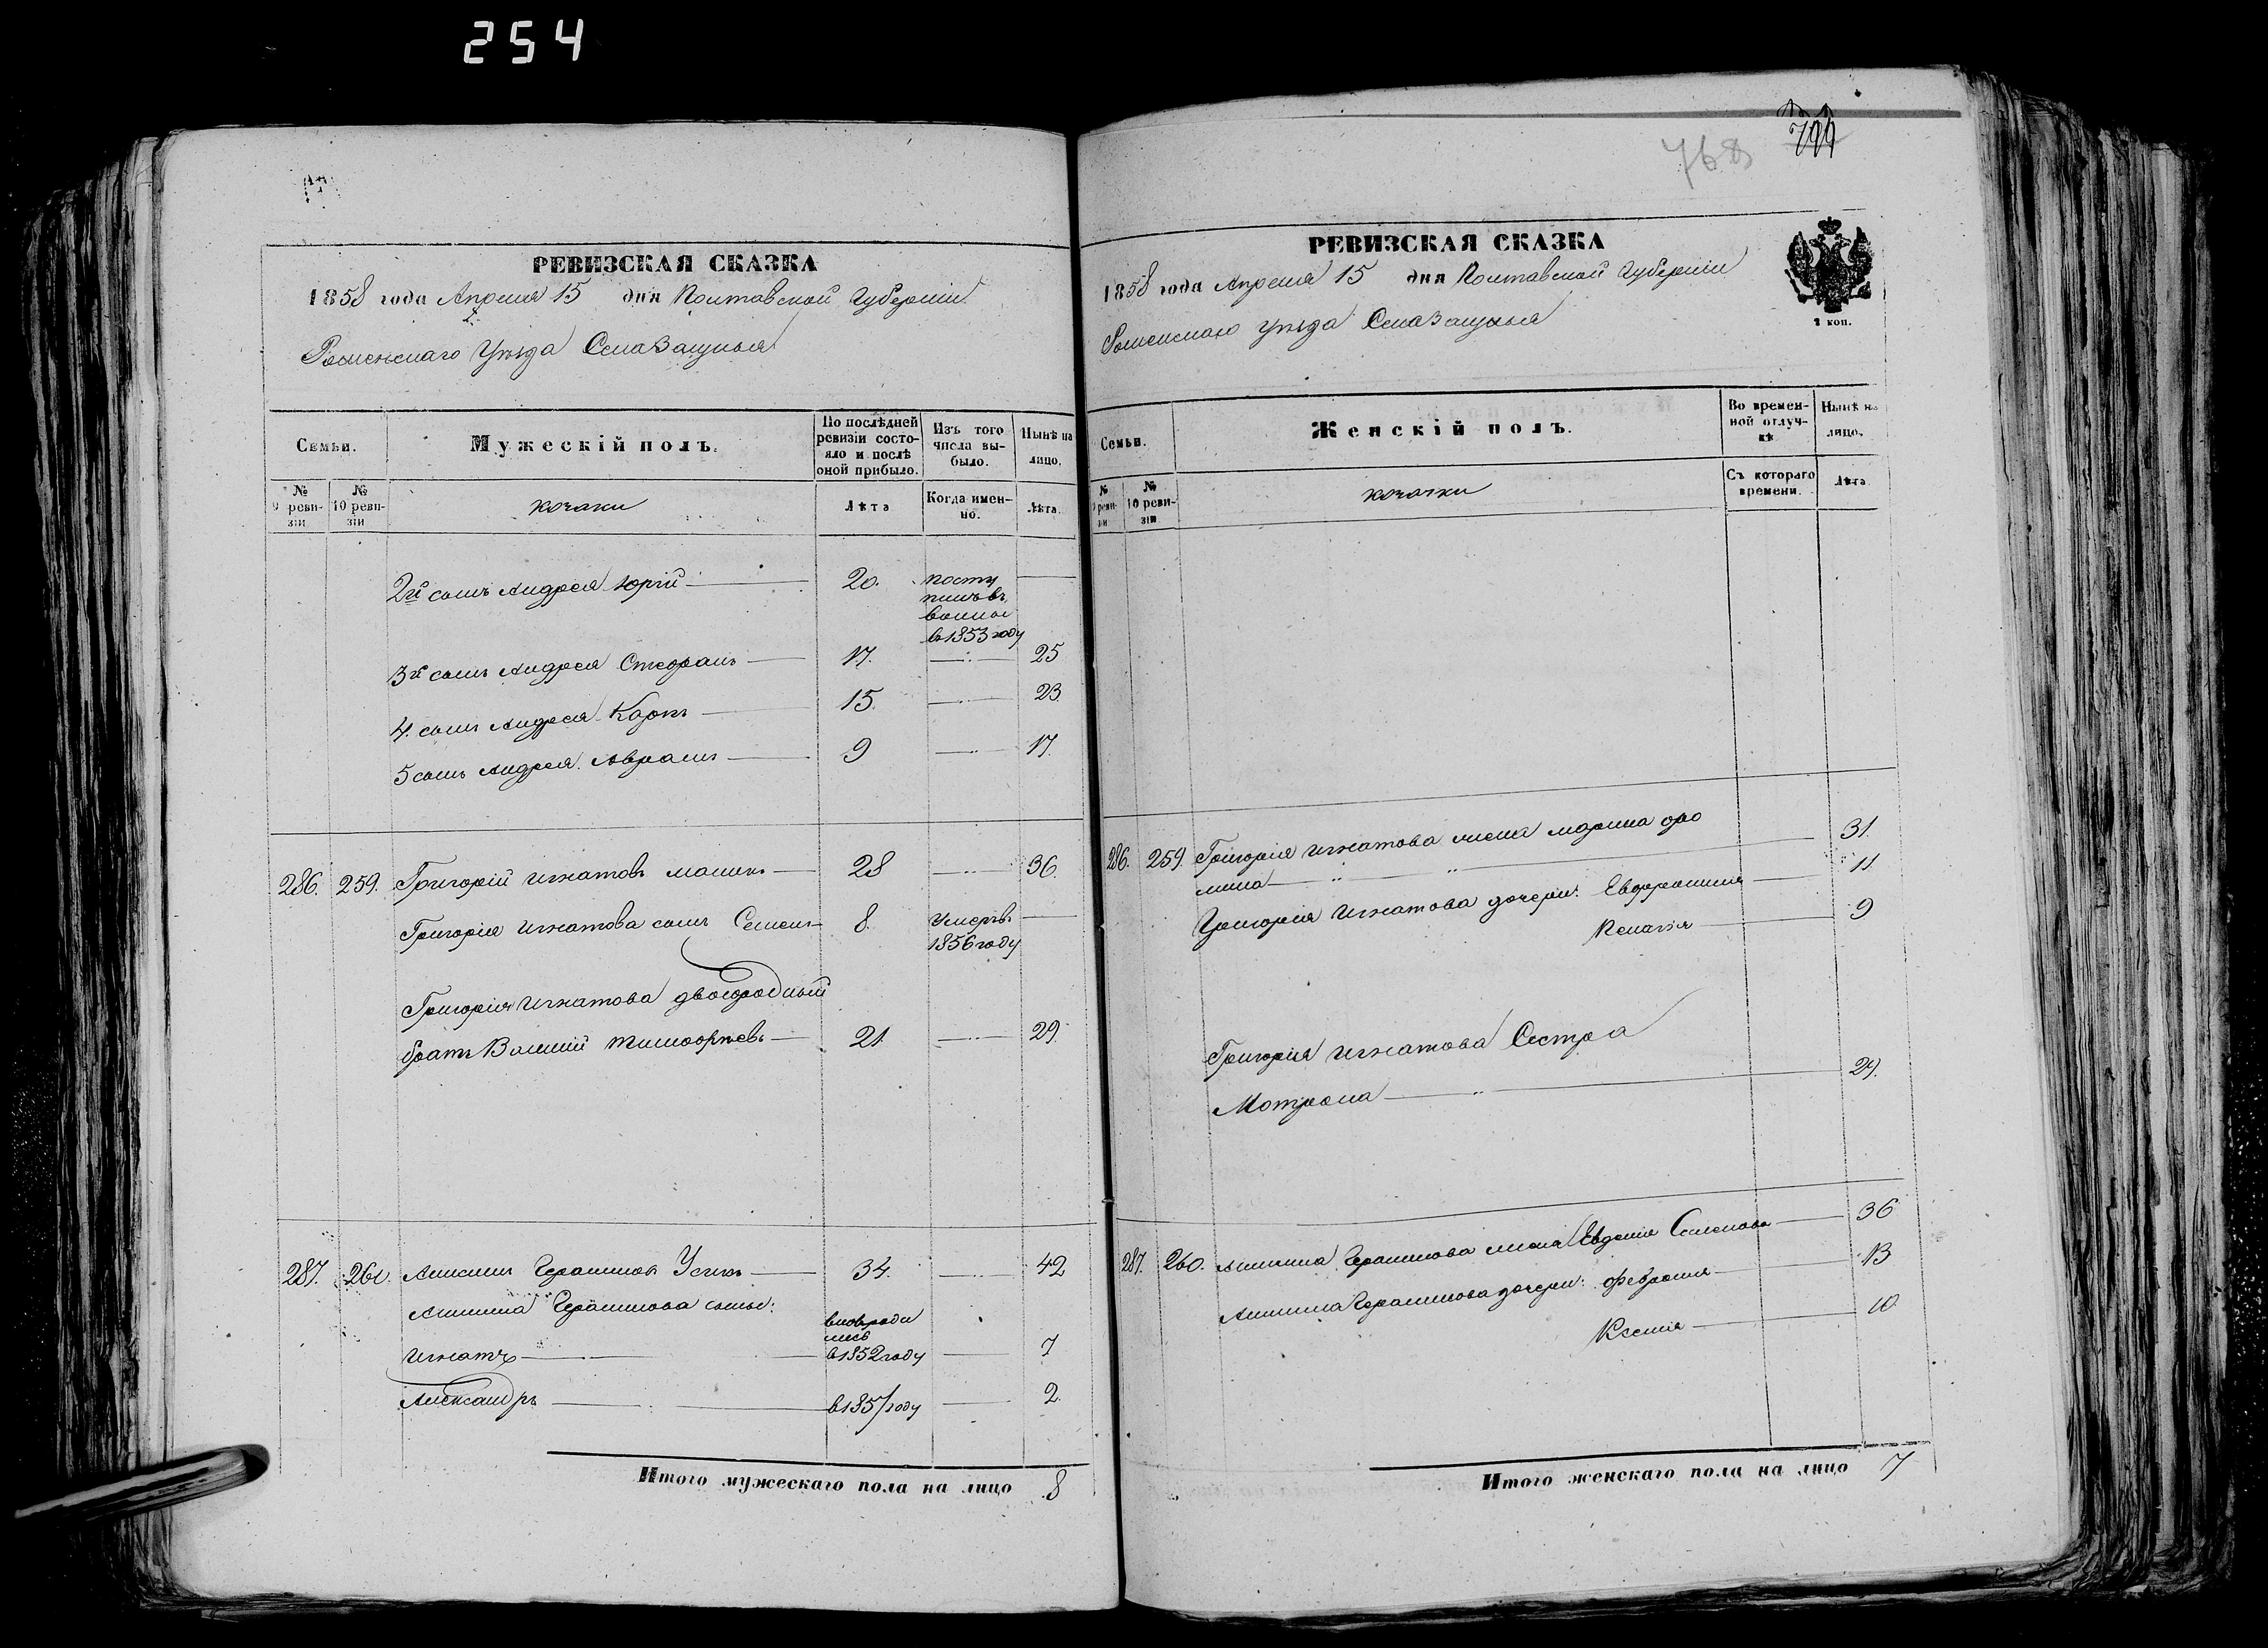 254
768
РЕВИЗСКАЯ СКАЗКА
1858 года Апреля 15 дня Полтавской Губерніи
Роменскаго Уезда Села Защиья
Семьи.
Мужескій полъ.
По послѣдней ревизіи состояло и послѣ оной прибыло.
Изъ того числа выбыло.
Нынѣ на лицо.
№ 9 ревизіи
№ 10 ревизіи
козаки
Лѣта
Когда именно.
Лѣта.
2й сынъ Андрея Юрій 20. посту
пилъ въ
военные
в 1853 году
3й сынъ Андрея Стефанъ 17. 25
4. сынъ Андрея Карпъ 15. 23
5 сынъ Андрея Аврамъ 9 17.
286. 259. Григорій Игнатовъ 28 36.
Григорія Игнатова сынъ Семенъ 8. Умеръ в
1856 году
Григорія Игнатова двоюродный
братъ Василий Тимофѣевъ 21. 29.
287. 260. Анисимъ Герасимовъ Усикъ 34. 42
Анисима Герасимова сыны:
вновь роди
лись
Игнатъ в 1852 году 7
Александръ в 1857 году 2.
Итого мужескаго пола на лицо 8
РЕВИЗСКАЯ СКАЗКА
1858 года Апреля 15 дня Полтавской Губерніи
Роменскаго Уезда Села Защиья
2 коп.
Семьи.
Женскій полъ.
Во временной отлучкѣ
Нынѣ на лицо.
№ 9 ревизіи
№ 10 ревизіи
козачки
Съ котораго времени.
Лѣта
286. 259. Григорія Игнатова жена Марина Фо
мина 31.
Григорія Игнатова дочери: Евфросинія 11
Пелагія 9
Григорія Игнатова Сестра
Мотрона 29.
287. 260. Анисима Герасимова жена Евдокія Семенова 36
Анисима Герасимова дочери: Феврония 13
Ксенія 10
Итого женскаго пола на лицо 7